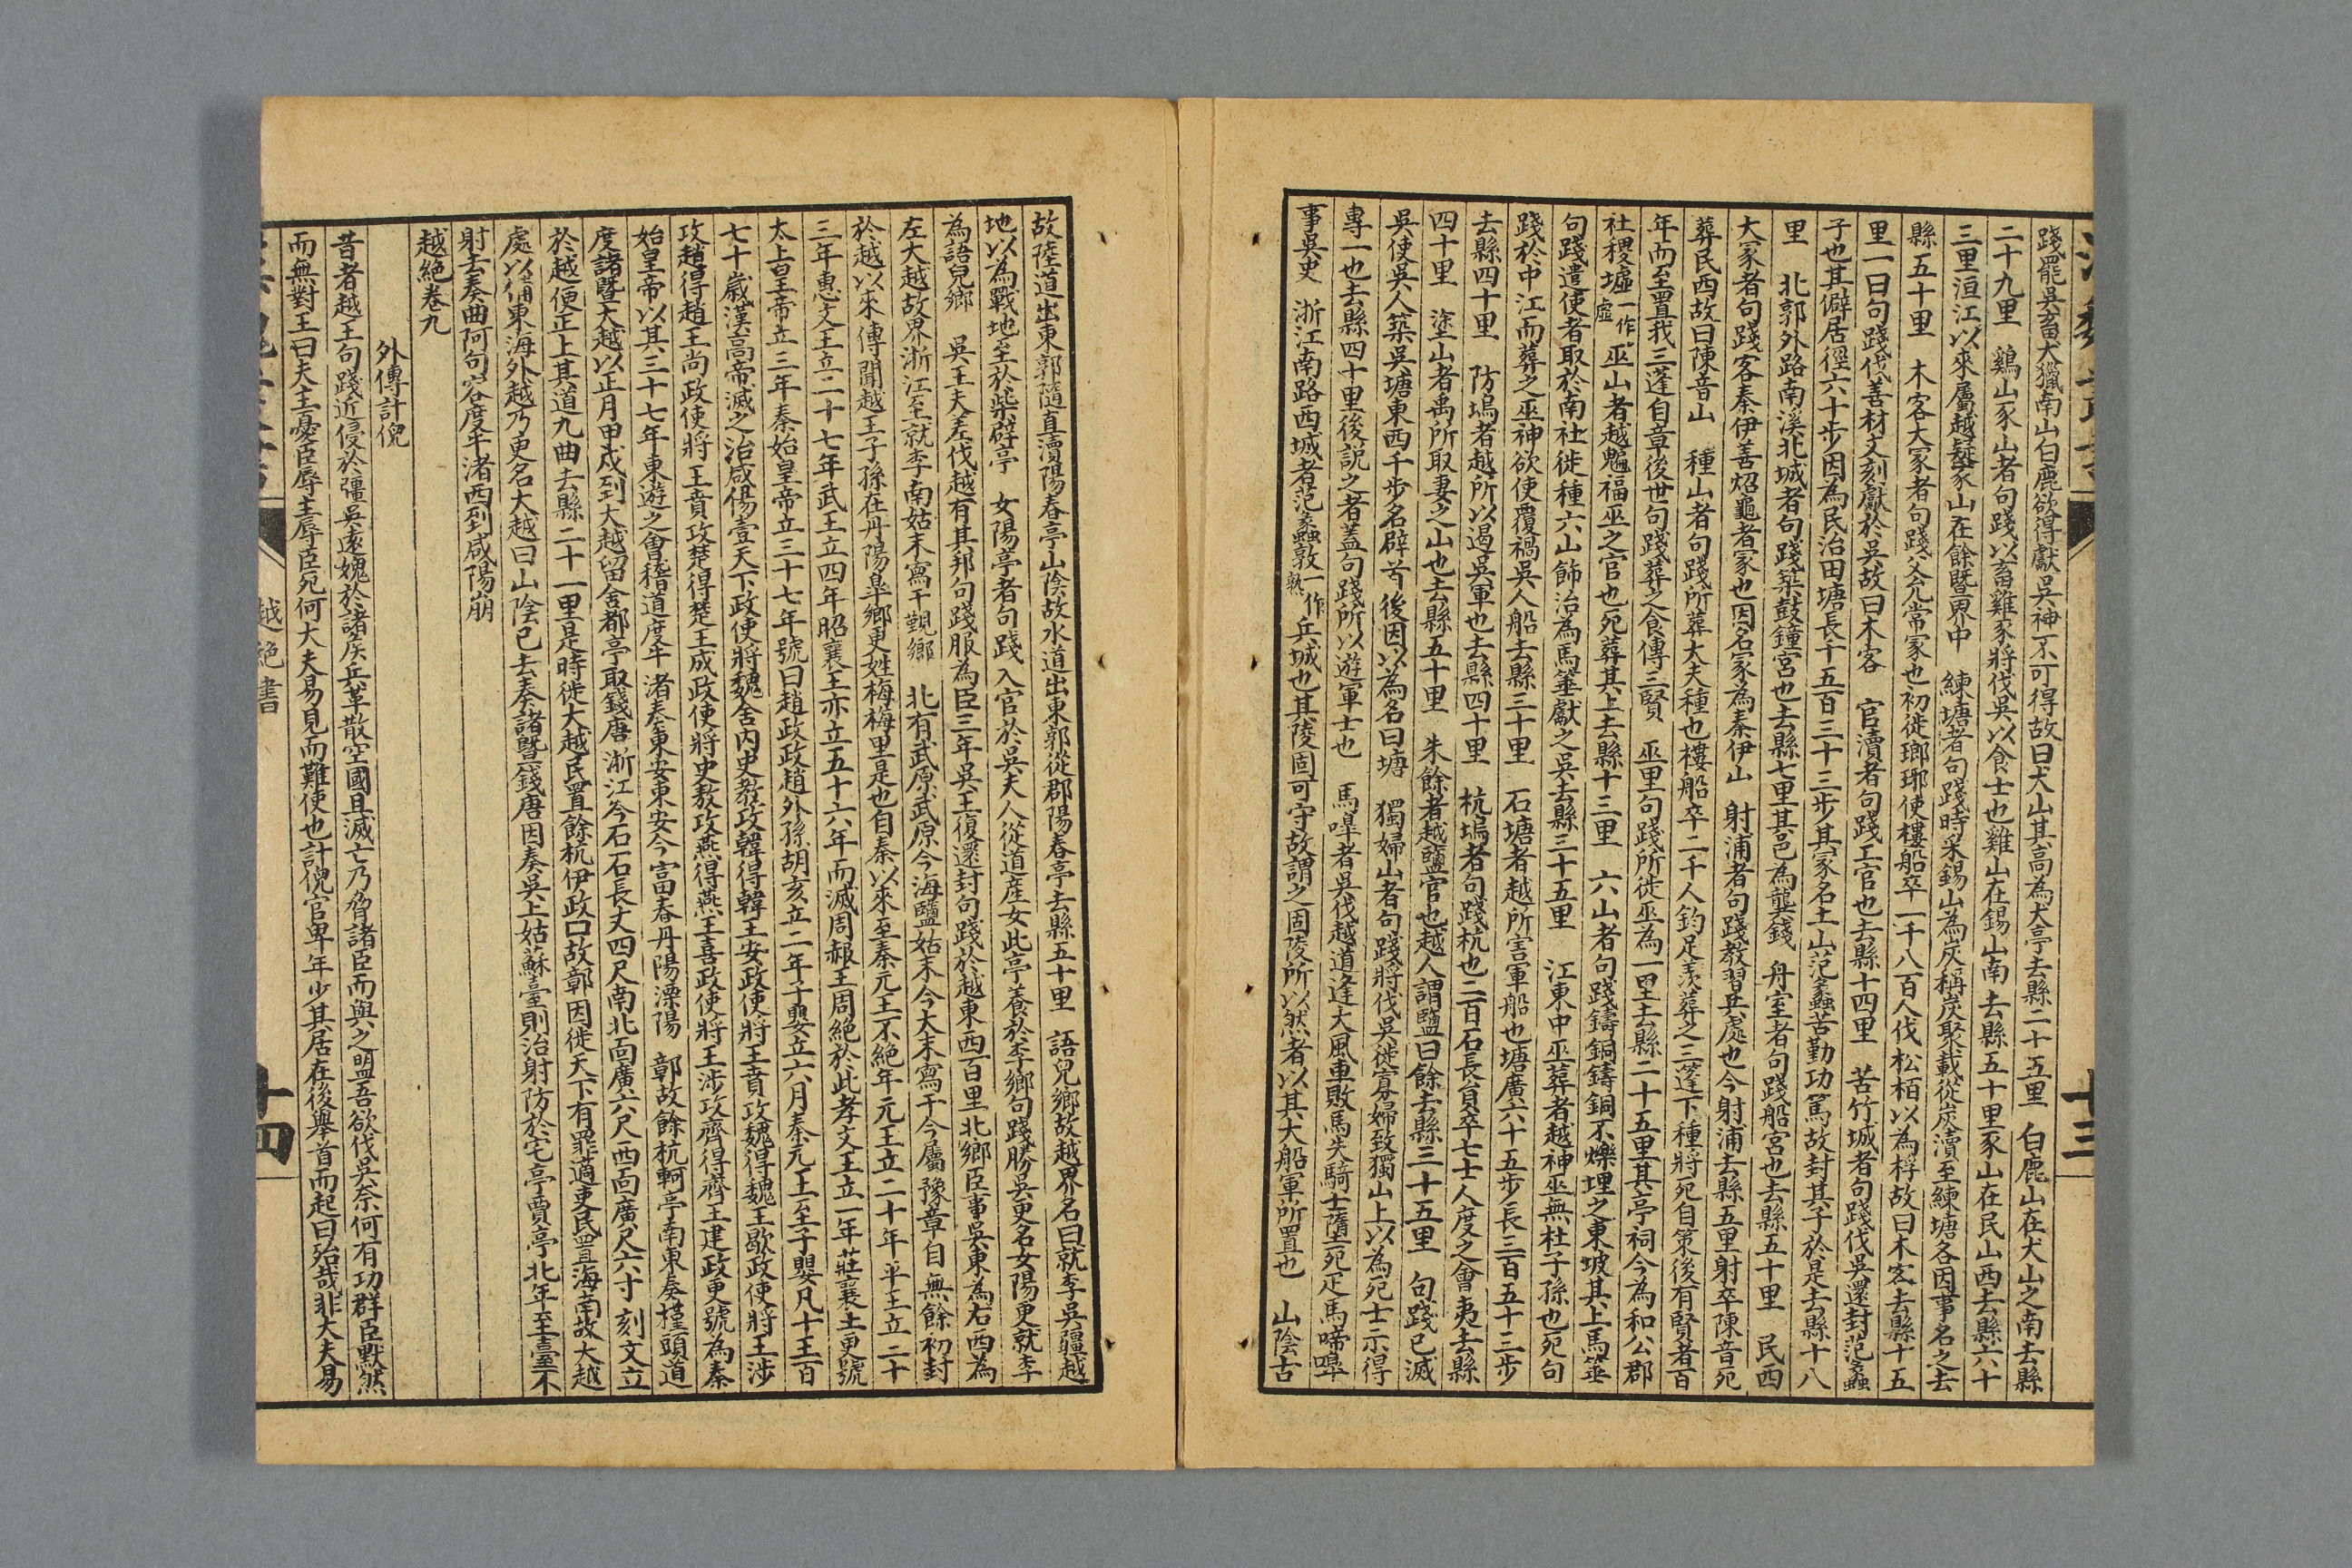 踐罷吳畜犬獵南山白鹿欲得獻吳神不可得故曰犬山其高為犬亭去縣二十五里　白鹿山在犬山之南去縣
二十九里　鷄山豕山者句踐以畜雞豕將伐吳以食士也雞山在錫山南去縣五十里豕山在民山西去縣六十
三里洹江以來屬越疑豕山在餘暨界中　練塘者句踐時采錫山為炭稱炭聚載從炭瀆至練塘各因事名之去
縣五十里　木客大冢者句踐父允常冢也初徙瑯琊使樓船卒二千八百人伐松栢以為桴故曰木客去縣十五
里一曰句踐伐善材文刻獻於吳故曰木客　官瀆者句踐工官也去縣十四里　苦竹城者句踐伐吳還封范蠡
子也其僻居徑六十步因為民治田塘長千五百三十三步其冢名土山范蠡苦勤功篤故封其子於是去縣十八
里　北郭外路南溪北城者句踐築鼓鐘宮也去縣七里其邑為龔錢　舟室者句踐船宮也去縣五十里　民西
大冢者句踐客秦伊善炤龜者冢也因名冢為秦伊山　射浦者句踐教習兵處也今射浦去縣五里射卒陳音死
葬民西故曰陳音山　種山者句踐所葬大夫種也樓船卒二千人鈞足羨葬之三蓬下種將死自策後有賢者百
年而至置我三蓬自章後世句踐葬之食傳三賢　巫里句踐所徙巫為一里去縣二十五里其亭祠今為和公郡
社稷墟一作虛巫山者越魑福巫之官也死葬其上去縣十三里　六山者句踐鑄銅鑄銅不爍埋之東坡其上馬箠
句踐遣使者取於南社徙種六山飾治為馬箠獻之吳去縣三十五里　江東中巫葬者越神巫無杜子孫也死句
踐於中江而葬之巫神欲使覆禍吳人船去縣三十里　石塘者越所害軍船也塘廣六十五步長三百五十三步
去縣四十里　防塢者越所以遏吳軍也去縣四十里　杭塢者句踐杭也二百石長負卒七士人度之會夷去縣
四十里　塗山者禹所取妻之山也去縣五十里　朱餘者越鹽官也越人謂鹽曰餘去縣三十五里　句踐已滅
吳使吳人築吳塘東西千步名辟首後因以為名曰塘　獨婦山者句踐將伐吳徙寡婦致獨山上以為死士示得
專一也去縣四十里後說之者蓋句踐所以遊軍士也　馬嘷者吳伐越道逢大風車敗馬失騎士墮死疋馬啼嘷
事吳史　浙江南路西城者范蠡敦一作熟兵城也其陵固可守故謂之固陵所以然者以其大船軍所置也　山陰古
故陸道出東郭隨直瀆陽春亭山陰故水道出東郭從郡陽春亭去縣五十里　語兒鄉故越界名曰就李吳疆越
地以為戰地至於柴辟亭　女陽亭者句踐入官於吳夫人從道產女此亭養於李鄉句踐勝吳更名女陽更就李
為語兒鄉　吳王夫差伐越有其邦句踐服為臣三年吳王復還封句踐於越東西百里北鄉臣事吳東為右西為
左大越故界浙江至就李南姑末寫干覲鄉　北有武原武原今海鹽姑末今大末寫干今屬豫章自無餘初封
於越以來傳聞越王子孫在丹陽皐鄉更姓梅梅里是也自秦以來至秦元王不絕年元王立二十年平王立二十
三年惠文王立二十七年武王立四年昭襄王亦立五十六年而滅周赧王周絕於此孝文王立一年莊襄王更號
太上皇帝立三年秦始皇帝立三十七年號曰趙政政趙外孫胡亥立二年子嬰立六月秦元王至子嬰凡十王百
七十歲漢高帝滅之治咸陽壹天下政使將魏舍內史教攻韓得韓王安政使將王賁攻魏得魏王歇政使將王涉
攻趙得趙王尚政使將王賁攻楚得楚王成政使將史敖攻燕得燕王喜政使將王涉攻齊得齊王建政更號為秦
始皇帝以其三十七年東遊之會稽道度牛渚奏東安東安今富春丹陽溧陽　鄣故餘杭軻亭南東奏槿頭道
度諸暨大越以正月甲戌到大越留舍都亭取錢唐　浙江岑石石長丈四尺南北面廣六尺西面廣尺六寸　刻文立
於越便正上其道九曲去縣二十一里是時徙大越民置餘杭伊政囗故鄣因徙天下有罪適吏民置海南故大越
處以備東海外越乃更名大越曰山陰已去奏諸暨錢唐因奏吳上姑蘇臺則治射防於宅亭賈亭北年至臺不
射去奏曲阿句容度牛渚西到咸陽崩
越絕卷九
外傳計倪
昔者越王句踐近侵於彊吳遠媿於諸侯兵革散空國且滅亡乃脅諸臣而與之盟吾欲伐吳奈何有功群臣默然
而無對王曰夫主憂臣辱主辱臣死何大夫易見而難使也計倪官卑年少其居在後舉首而起曰殆哉非大夫易
越絕書
十四
十三